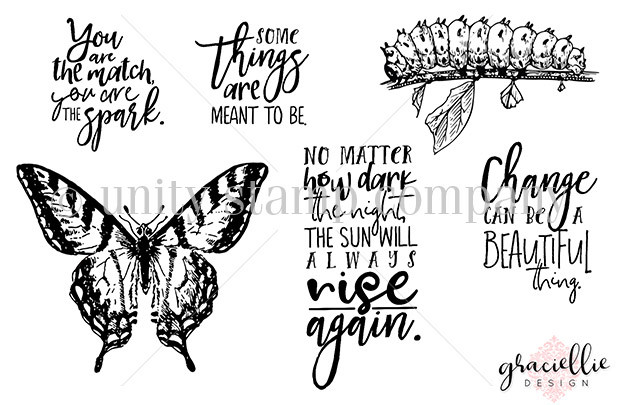 You
are
the match,
you are
THE spark.
SOME
things
are
MEANT TO BE.
NO MATTER
how dark
the night,
THE SUN WILL
ALWAYS
rise
again.
Change
CAN BE A
BEAUTIFUL
thing.
© unity stamp company
graciellie
DESIGN